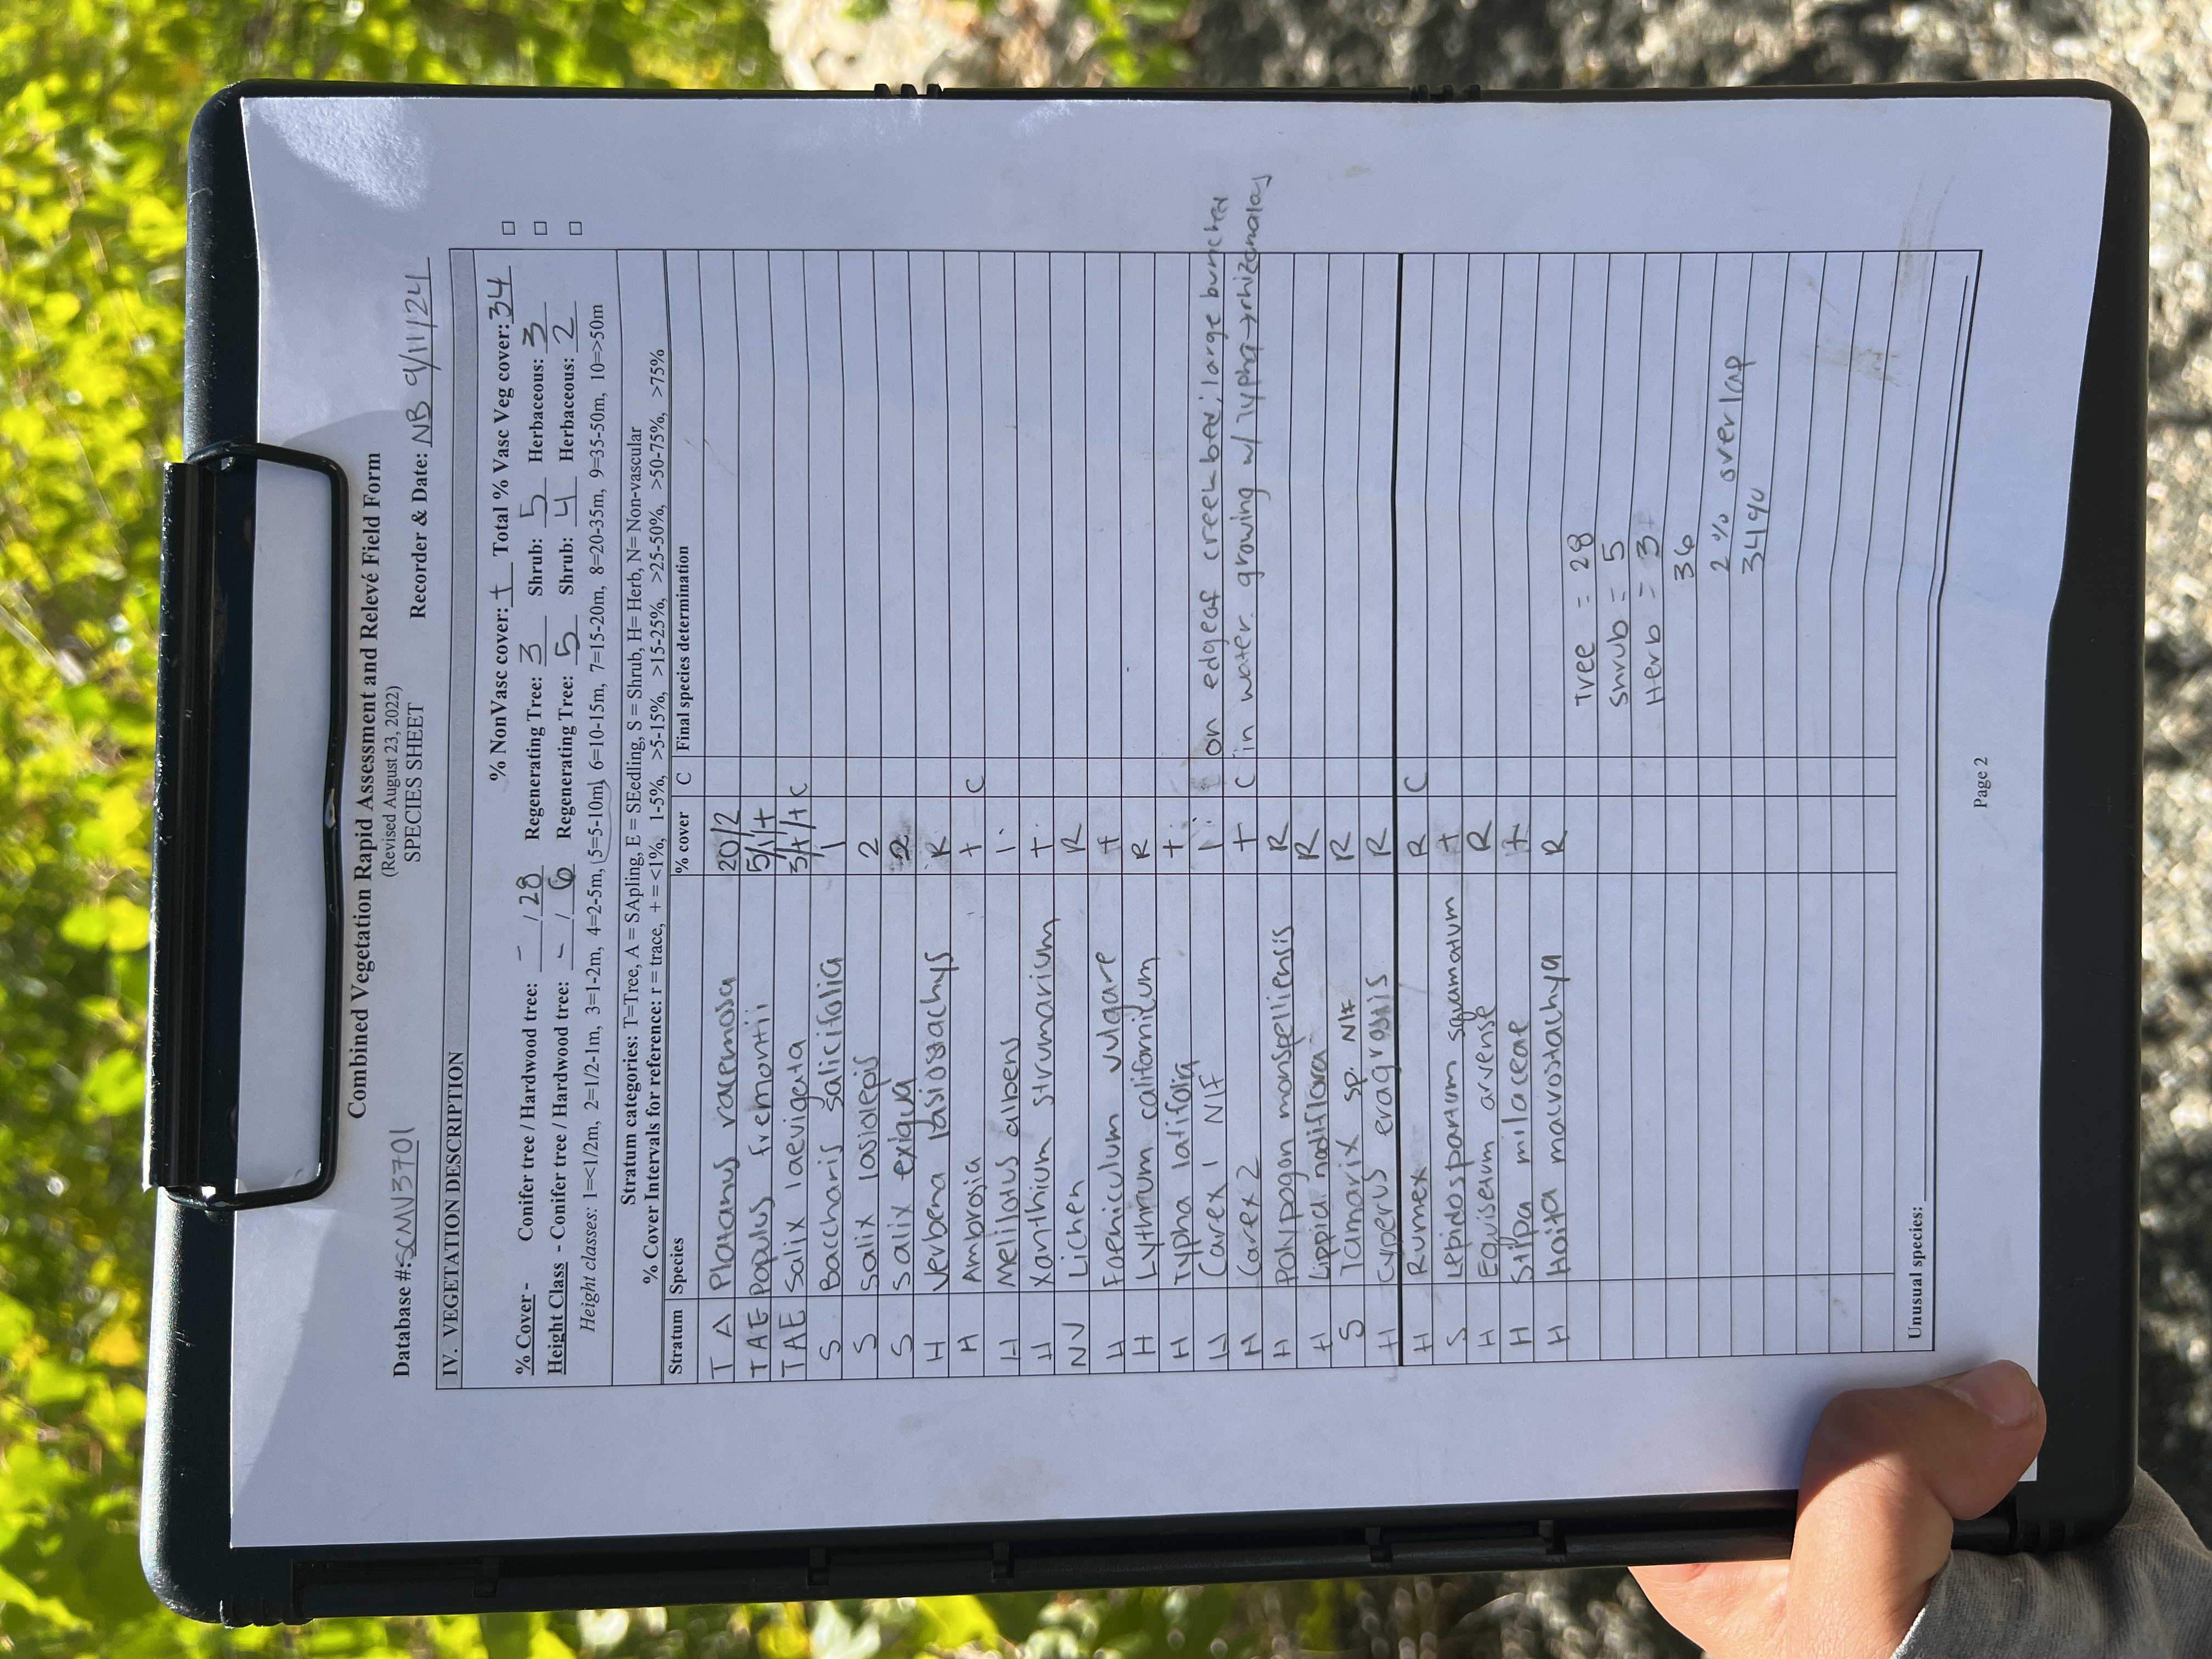 Combined Vegetation Rapid Assessment and Relevé Field Form
(Revised August 23, 2022)
SPECIES SHEET
Database #: SCMV3701 Recorder & Date: NB 9/11/24
IV. VEGETATION DESCRIPTION
% NonVasc cover: + Total % Vasc Veg cover: 34
% Cover - Conifer tree / Hardwood tree: - / 28 Regenerating Tree: 3 Shrub: 5 Herbaceous: 3
Height Class - Conifer tree / Hardwood tree: - / 6 Regenerating Tree: 5 Shrub: 4 Herbaceous: 2
Height classes: 1=<1/2m, 2=1/2-1m, 3=1-2m, 4=2-5m, 5=5-10m, 6=10-15m, 7=15-20m, 8=20-35m, 9=35-50m, 10=>50m
Stratum categories: T=Tree, A = SApling, E = SEedling, S = Shrub, H= Herb, N= Non-vascular
% Cover Intervals for reference: r = trace, + = <1%, 1-5%, >5-15%, >15-25%, >25-50%, >50-75%, >75%
Stratum Species % cover C Final species determination
T A Platanus racemosa 20/2
TAE Populus fremontii 5/1/+
TAE Salix laevigata 3/+/+ C
S Baccharis salicifolia 1
S Salix lasiolepis 2
S Salix exigua 2
H Verbena lasiostachys R
H Ambrosia + C
H Melilotus albens 1
H Xanthium strumarium +
NV Lichen R
H Foeniculum vulgare +
H Lythrum californilum R
H Typha latifolia +
H Carex 1 NIF 1 on edge of creek bed; large bunches
H Carex 2 + C in water. growing w/ Typha → rhizomatous
H Polypogon monspelliensis R
H Lippia nodiflora R
S Tamarix sp. NIF R
H Cyperus eragrostis R
H Rumex R C
S Lepidospartum squamatum +
H Equisetum arvense R
H Stipa milaceae +
H Hoita macrostachya R
Tree = 28
Shrub = 5
Herb = 3
36
2% overlap
34%
Unusual species:
Page 2